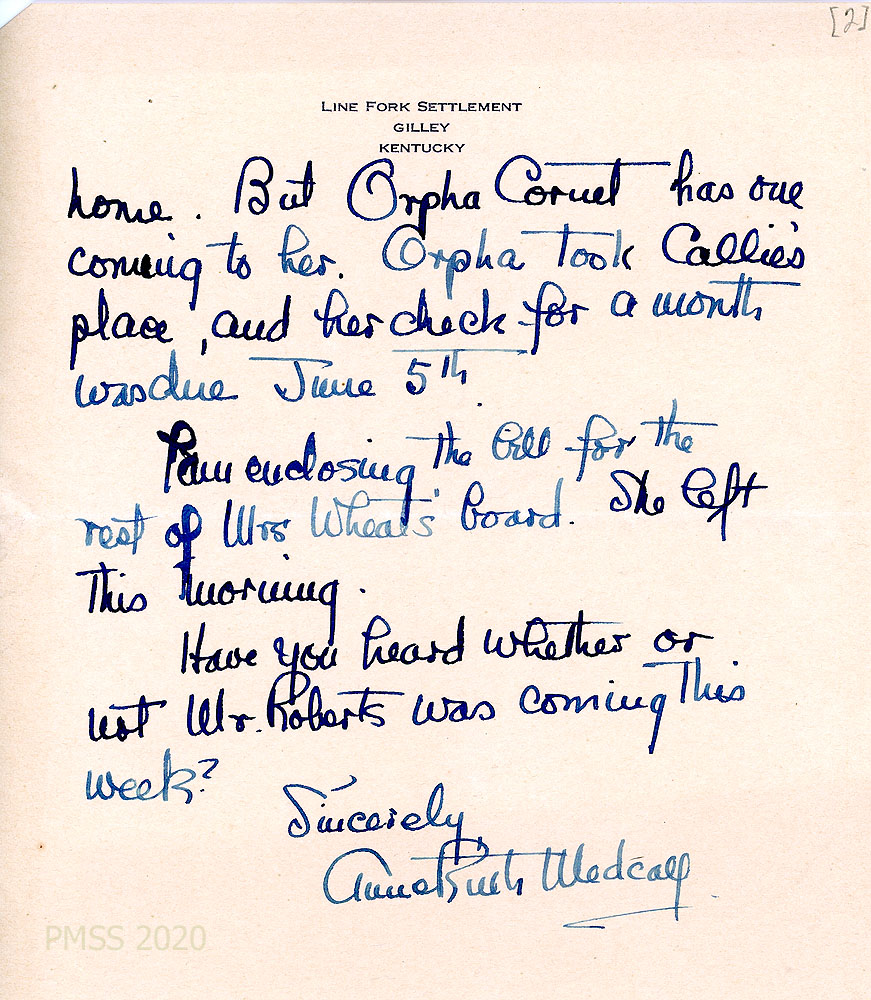 [2]
LINE FORK SETTLEMENT
GILLEY
KENTUCKY
home. But Orpha Cornet has one
coming to her. Orpha took Callie's
place, and her check for a month
was due June 5th
I am enclosing the bill for the
rest of Mrs Wheat's board. She left
this morning.
Have you heard whether or
not Mr. Roberts was coming this
week?
Sincerely,
Anne Ruth Medcalf
PMSS 2020